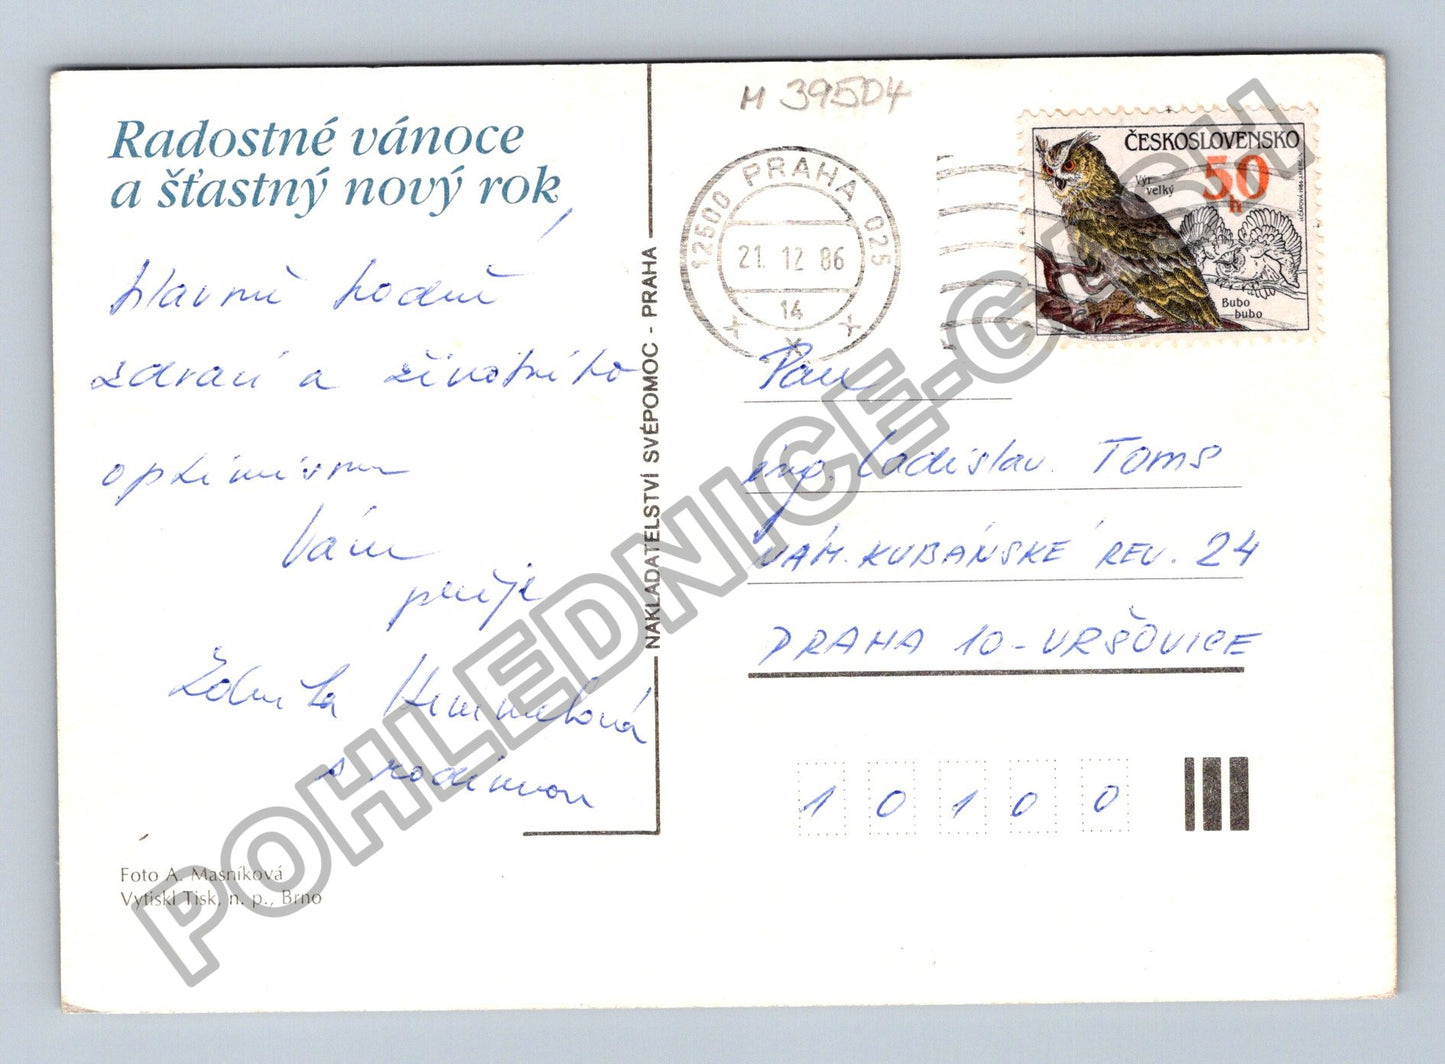 Radostné vánoce
a šťastný nový rok
hlavně hodně
zdraví a životního
optimismu
Vám
přeje
Zdeňka Himmelová
s rodinou
Foto A. Masníková
Vytiskl Tisk, n. p., Brno
NAKLADATELSTVÍ SVÉPOMOC - PRAHA
M 39504
12500 PRAHA 025
21. 12 86
14
ČESKOSLOVENSKO
Výr
velký
50
h
Bubo
bubo
Pan
ing. Ladislav Toms
NÁM. KUBÁNSKÉ REV. 24
PRAHA 10 - VRŠOVICE
10100
POHLEDNICE-GASH